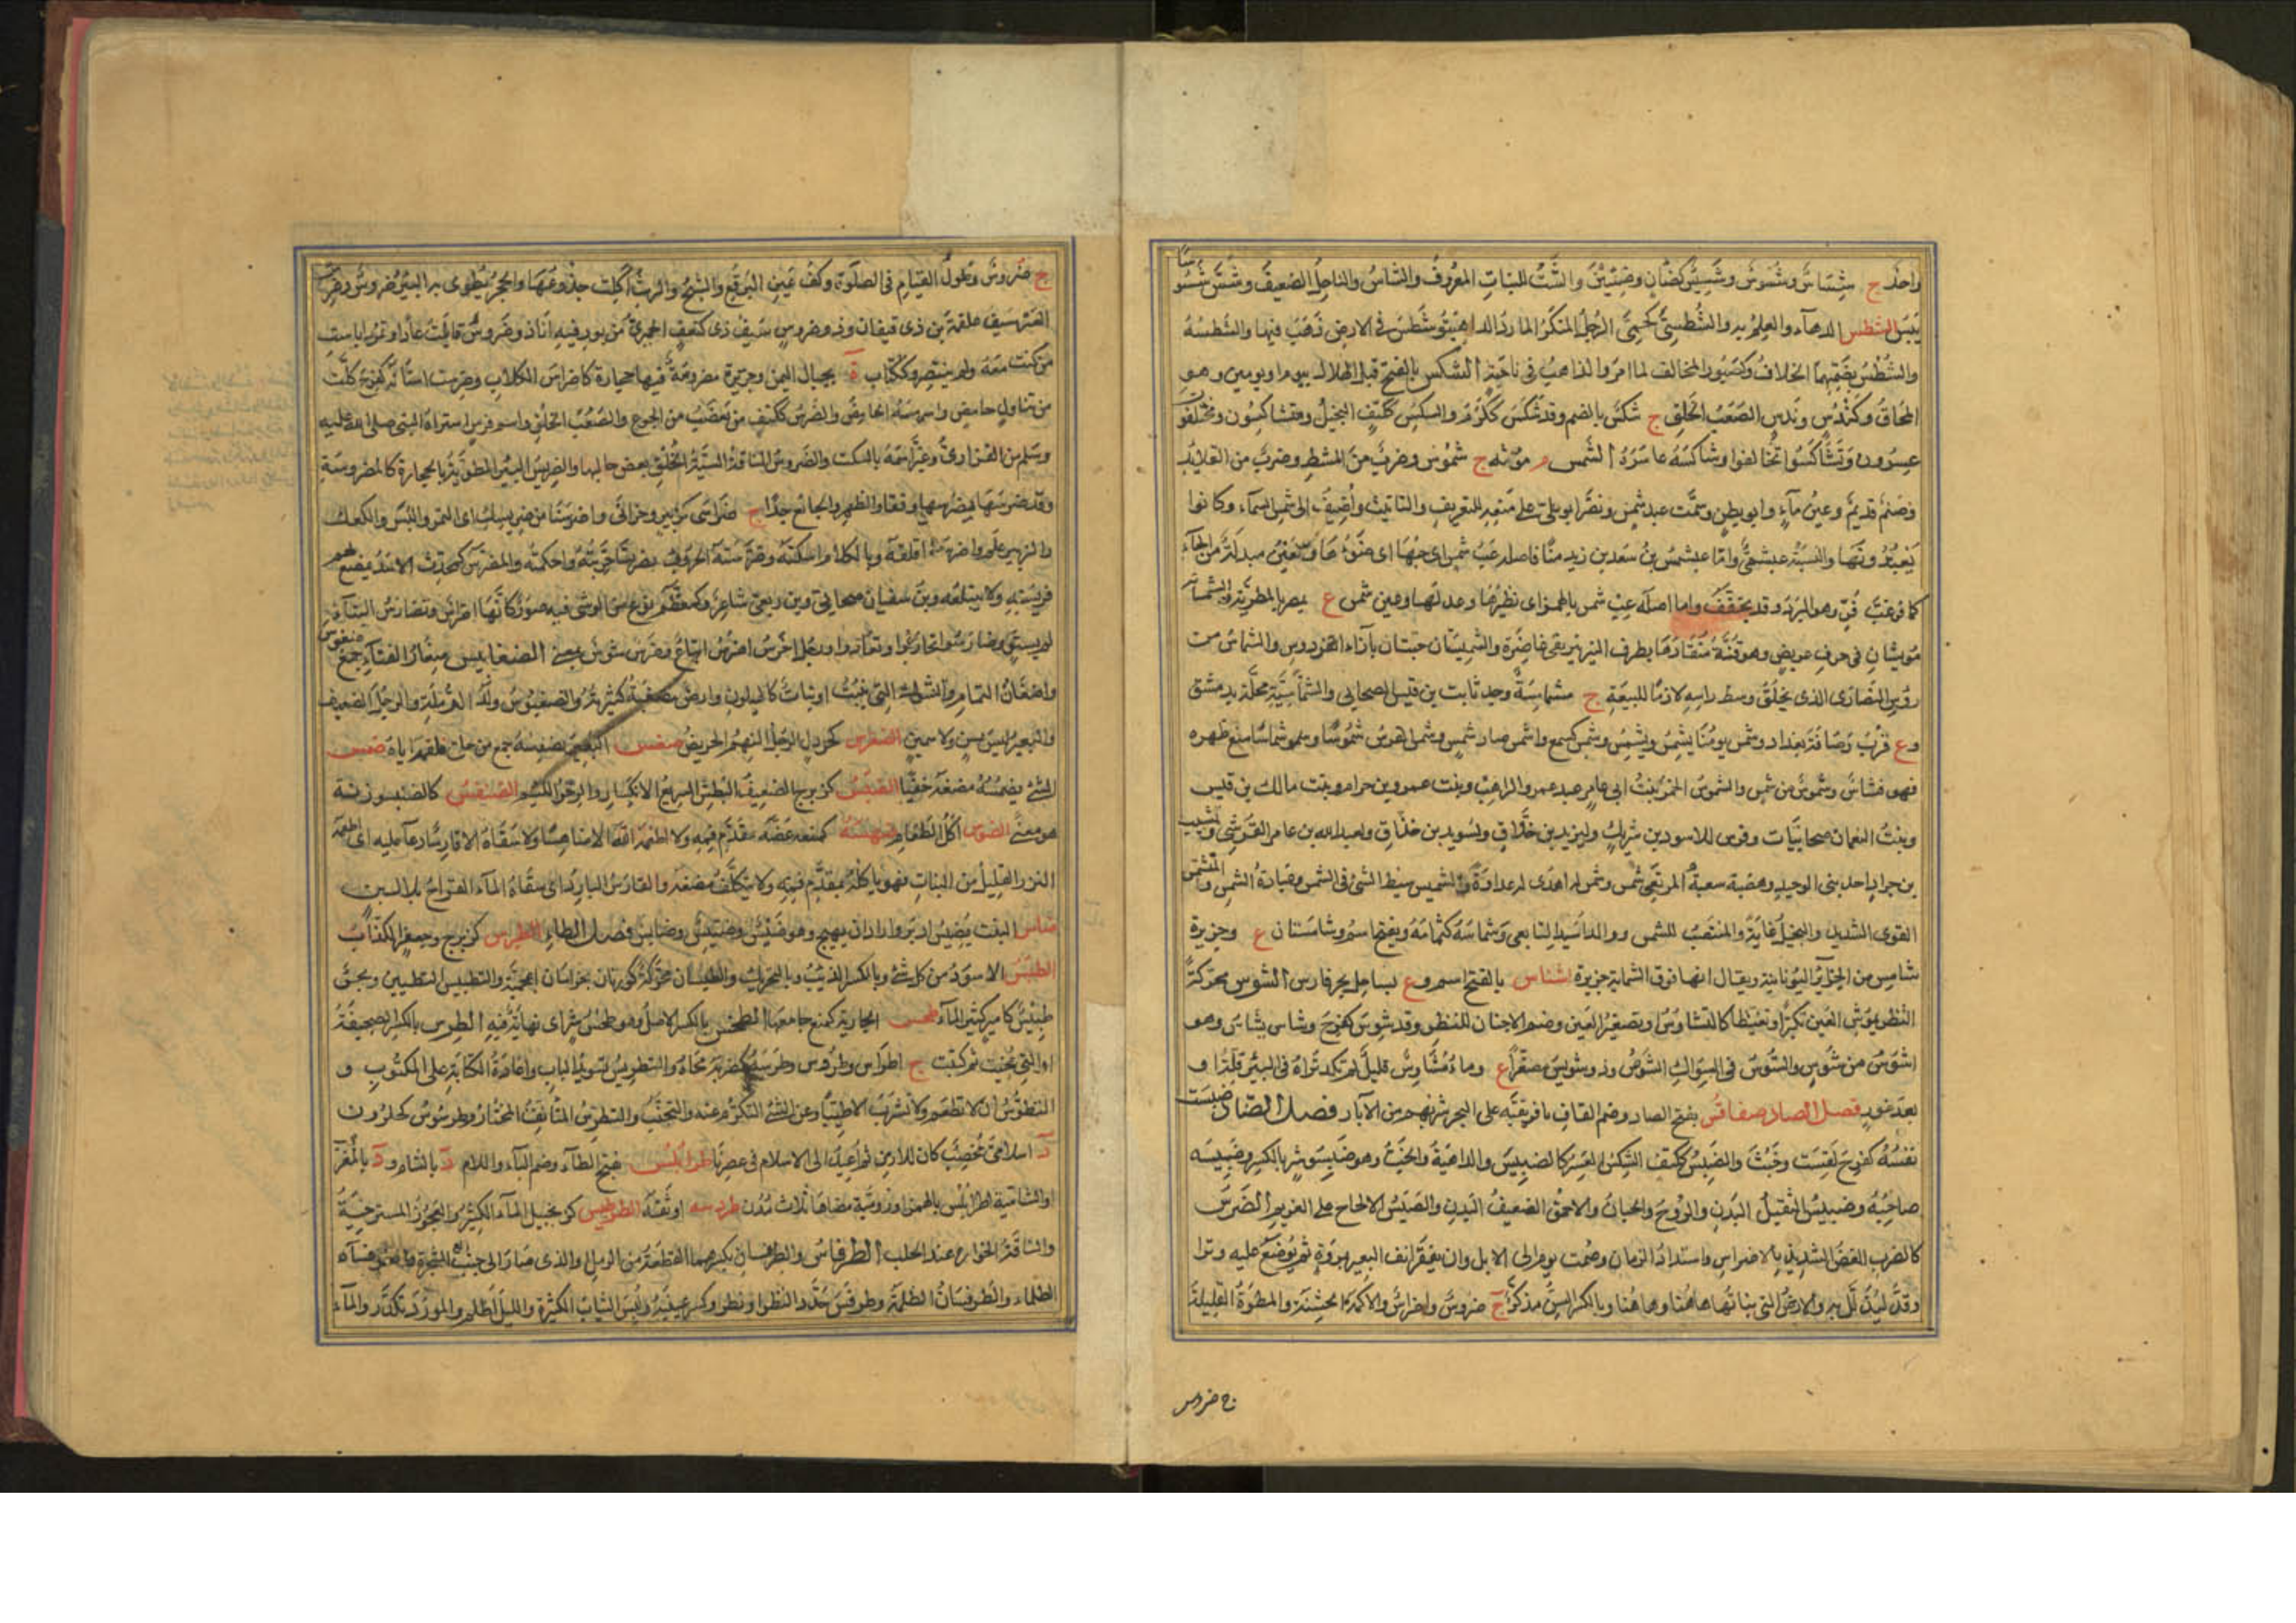 واحد ج شساس وشسوس وشسيس كضان وضئين والشث للنبات المعروف والشاس والناحل الضعيف وشس شسوسا
يبس الشطس الدهاء والعلم به والشطسى كجمحى الرجل المنكر المارد الداهية وشطس فى الارض ذهب فيها والشطسة
والشطس بضمهما الخلاف وكصبور المخالف لما امر والذاهب فى ناحية الشكس بالفتح قبل الهلال بيوم او يومين وهو
المحاق وكندس وكتف الصعب الخلق ج شكس بالضم وقد شكس ككرم والشكس ككتف البخيل ومتشاكسون مختلفون
عسرون وتشاكسوا تخالفوا وشاكسه عاسره الشمس م مؤنثة ج شموس وضرب من المشط وضرب من القلائد
وصنم قديم وعين ماء وابو بطن وسمت عبد شمس ونص ابو على على منعه للتعريف والتانيث واضيف الى شمس السماء وكانوا
يعبدونها والنسبة عبشمى واما عبشمس بن سعد بن زيد مناة فاصله عب شمس اى حبها اى ضوءها والعين مبدلة من الحاء
كما فى عب قر وهو البرد وقد يخفف واما اصله عبء شمس بالهمز اى نظيرها وعدلها وعين شمس ع بمصر بالمطرية والشمستان
مويهتان فى جوف عريض وهو قنة منقادة بطرف النير نير بنى غاضرة والشميستان جنتان بازاء الفردوس والشماس من
روس النصارى الذى يحلق وسط راسه لازما للبيعة ج شمامسة وجد ثابت بن قيس الصحابى والشماسية محلة بدمشق
وع قرب رصافة بغداد وشمس يومنا يشمس ويشمس وشمس كسمع واشمس صار ذا شمس وشمس الفرس شموسا وشماسا منع ظهره
فهو شامس وشموس من شمس والشموس الخمر وبنت ابى عامر عبد عمرو الراهب وبنت عمرو بن حرام وبنت مالك بن قيس
وبنت النعمان صحابيات وفرس للاسود بن شريك وليزيد بن خذاق ولسويد بن خذاق ولعبد الله بن عامر القرشى ولشبيب
بن جراد احد بنى الوحيد وهضبة صعبة المرتقى وشمس له ابدى له عداوة والتشميس بسط الشئ فى الشمس وعبادة الشمس والمتشمس
القوى الشديد والبخيل غاية والمنتصب للشمس ووالد اسيد التابعى وشماسة كثمامة ويفتح اسم وشامستان ع وجزيرة
شامس من الجزائر اليونانية ويقال انها فوق الثمانية جزيرة اشناس بالفتح اسم وع بساحل بحر فارس الشوس محركة
النظر بمؤخر العين تكبرا وتغيظا كالتشاوس او تصغير العين وضم الاجفان للنظر وقد شوس كفرح وشاس يشاس وهو
اشوس من شوس والشوس فى السواك الشوص وذو شويس مصغرا ع وماء متشاوس قليل لم تكد تراه فى البئر قلة او
بعد غور فصل الصاد صفاقس بفتح الصاد وضم القاف بافريقية على البحر شربهم من الآبار فصل الضاد ضبست
نفسه كفرح لقست وخبثت والضبس ككتف الشكس العسر كالضبيس والداهية والخب وهو ضبس شر بالكسر وضبيسه
صاحبه وضبيس الثقيل البدن والروح والجبان والاحمق الضعيف البدن والضبس الالحاح على الغريم الضرس
كالضرب العض الشديد بالاضراس واشتداد الزمان وصمت يوم الى الليل وان يفقر انف البعير بمروة ثم يوضع عليه وتر او
وقد ليذلل به والارض التى نباتها هاهنا وهاهنا وبالكسر السن مذكر ج ضروس واضراس والاكمة الخشنة والمطرة القليلة
ج ضروس
ج ضروس وطول القيام فى الصلوة وكف عين البرقع والشيح والرمث اكلت جذوعها والحجر يطوى به البئر ضروس وضرس
العير سيف علقمة بن ذى قيفان وذو ضروس سيف ذى كنعان الحميرى مزبور فيه انا ذو ضروس قاتلت عادا وثمودا باست
من كنت معه ولم ينتصر وككتاب ة بجبال اليمن وحرة مضروسة فيها حجارة كاضراس الكلاب وضرست اسنانه كفرح كلت
من تناول حامض واضرسه الحامض والضرس ككتف من يغضب من الجوع والصعب الخلق واسم فرس اشتراه النبى صلى الله عليه
وسلم من الفزارى وغير اسمه بالسكب والضروس الناقة السيئة الخلق تعض حالبها والضريس البئر المطوية بالحجارة كالمضروسة
وقد ضرسها يضرسها وفقار الظهر والجائع جدا ج ضراسى كحزين وحزانى واضرسنا من ضريسك اى التمر والبسر والكعك
والزبير علم واضرسه اقلقه وبالكلام اسكته وضرسته الحروب تضريسا جربته واحكمته والمضرس كمحدث الاسد يمضغ لحم
فريسته ولا يبتلعه وبن سفيان صحابى وبن ربعى شاعر وكمعظم نوع من الوشى فيه صور كانها اضراس وتضارس البناء
لم يستو وضارسوا تحاربوا وتعادوا ورجل اخرس اضرس اتباع وضرس شرس بمعنى الضغابيس صغار القثاء جمع ضغبوس
واغصان الثمام والشوك التى تنبت او نبات كالهليون وارض مضغبة كثيرته والضغبوس ولد الثرملة والرجل الضعيف
والبعير ليس بمسن ولا سمين الضغرس كجردل الرجل النهم الحريص ضفس البعير يضفسه جمع من حلى فلقمه اياه ضمس
الشئ يضمسه مضغه خفيا الضنبس كزبرج الضعيف البطش السريع الانكسار والرخو اللئيم الضنفس كالضنبس زنة
ومعنى الضوس اكل الطعام ضهسه كمنعه عضه بمقدم فيه ولا اطعمه الله الا ضاهسا ولا سقاه الا قارسا دعاء عليه اى اطعمه
النزر القليل من النبات فهو ياكله بمقدم فيه ولا يتكلف مضغه والقارس البارد اى سقاه الماء القراح بلا لبن
ضاس النبت يضيس ادبر واراد ان يهيج وهو ضئيس وضيس وضايس فصل الطاء الطبرس كزبرج وجعفر الكذاب
الطبس الاسود من كل شئ وبالكسر الذئب وبالتحريك والطبسان محركة كورتان بخراسان اعجمية والتطبيس التطيين وبحر
طبيس كامير كثير الماء طحس الجارية كمنع جامعها الطخس بالكسر الاصل وهو طخس شر اى نهاية فيه الطرس بالكسر الصحيفة
او التى محيت ثم كتبت ج اطراس وطروس وطرسه كضربه محاه والتطريس تسويد الباب واعادة الكتابة على المكتوب و
التطرس ان لا تطعم ولا تشرب الا طيبا وعن الشئ التكرم عنه والتجنب والمتطرس المتانق المختار وطرسوس كحلزون
د اسلامى مخصب كان للارمن ثم اعيد الى الاسلام فى عصرنا طرابلس بفتح الطاء وضم الباء واللام د بالشام ود بالمغرب
او الشامية اطرابلس بالهمز او رومية معناها ثلاث مدن طردسه اوثقه الطرطبيس كزنجبيل الماء الكثير والعجوز المسترخية
والناقة الخوارة عند الحلب الطرفاس والطرفسان بكسرهما القطعة من الرمل والذى صار الى جنب الشجرة
الظلماء والطرفسان الظلمة وطرفس حدد النظر او نظر وكسر عينيه ولبس الثياب الكثيرة والليل اظلم والمورد تكدر والماء